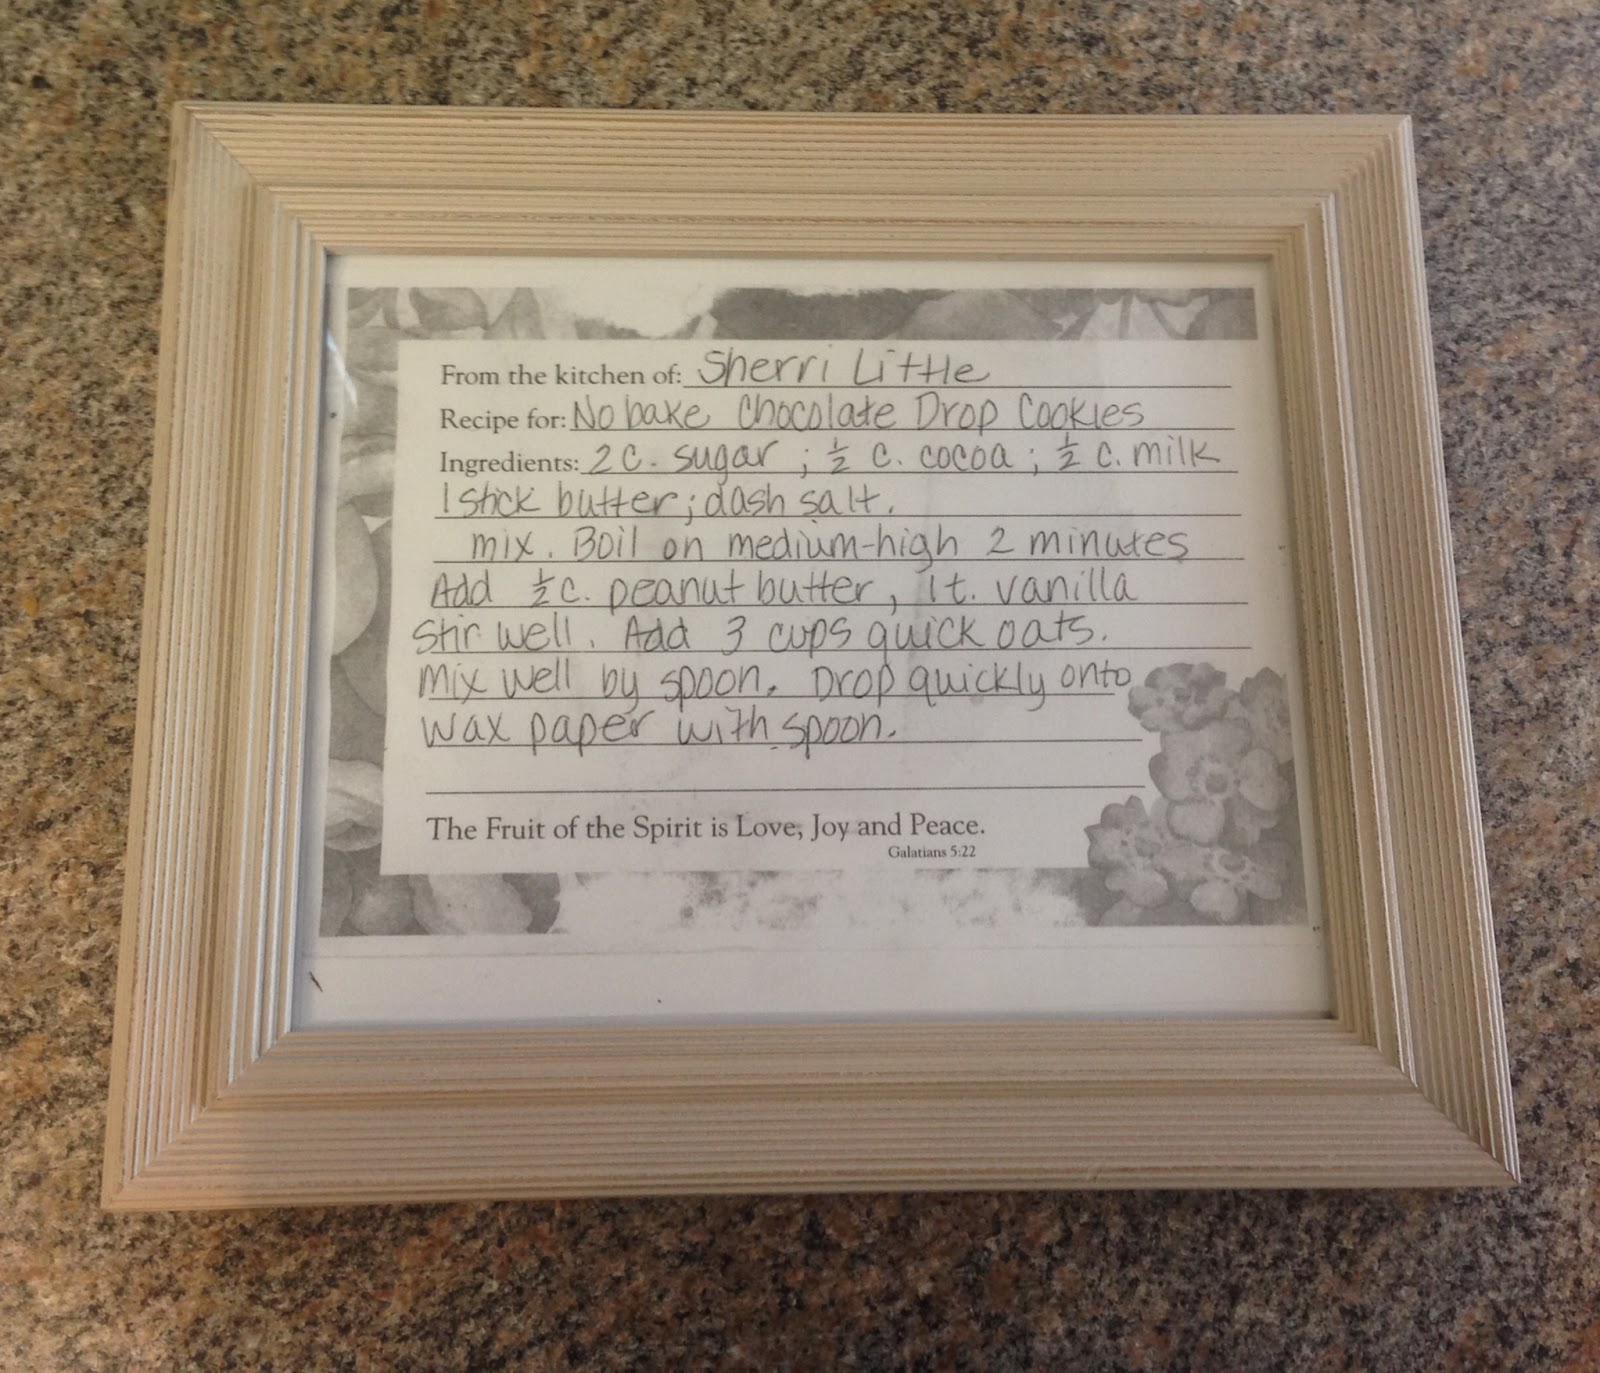 From the kitchen of: Sherri Little
Recipe for: No bake Chocolate Drop Cookies
Ingredients: 2 c. sugar ; ½ c. cocoa ; ½ c. milk
1 stick butter; dash salt.
mix. Boil on medium-high 2 minutes
Add ½ c. peanut butter, 1 t. vanilla
Stir well. Add 3 cups quick oats.
Mix well by spoon. Drop quickly onto
wax paper with spoon.
The Fruit of the Spirit is Love, Joy and Peace.
Galatians 5:22